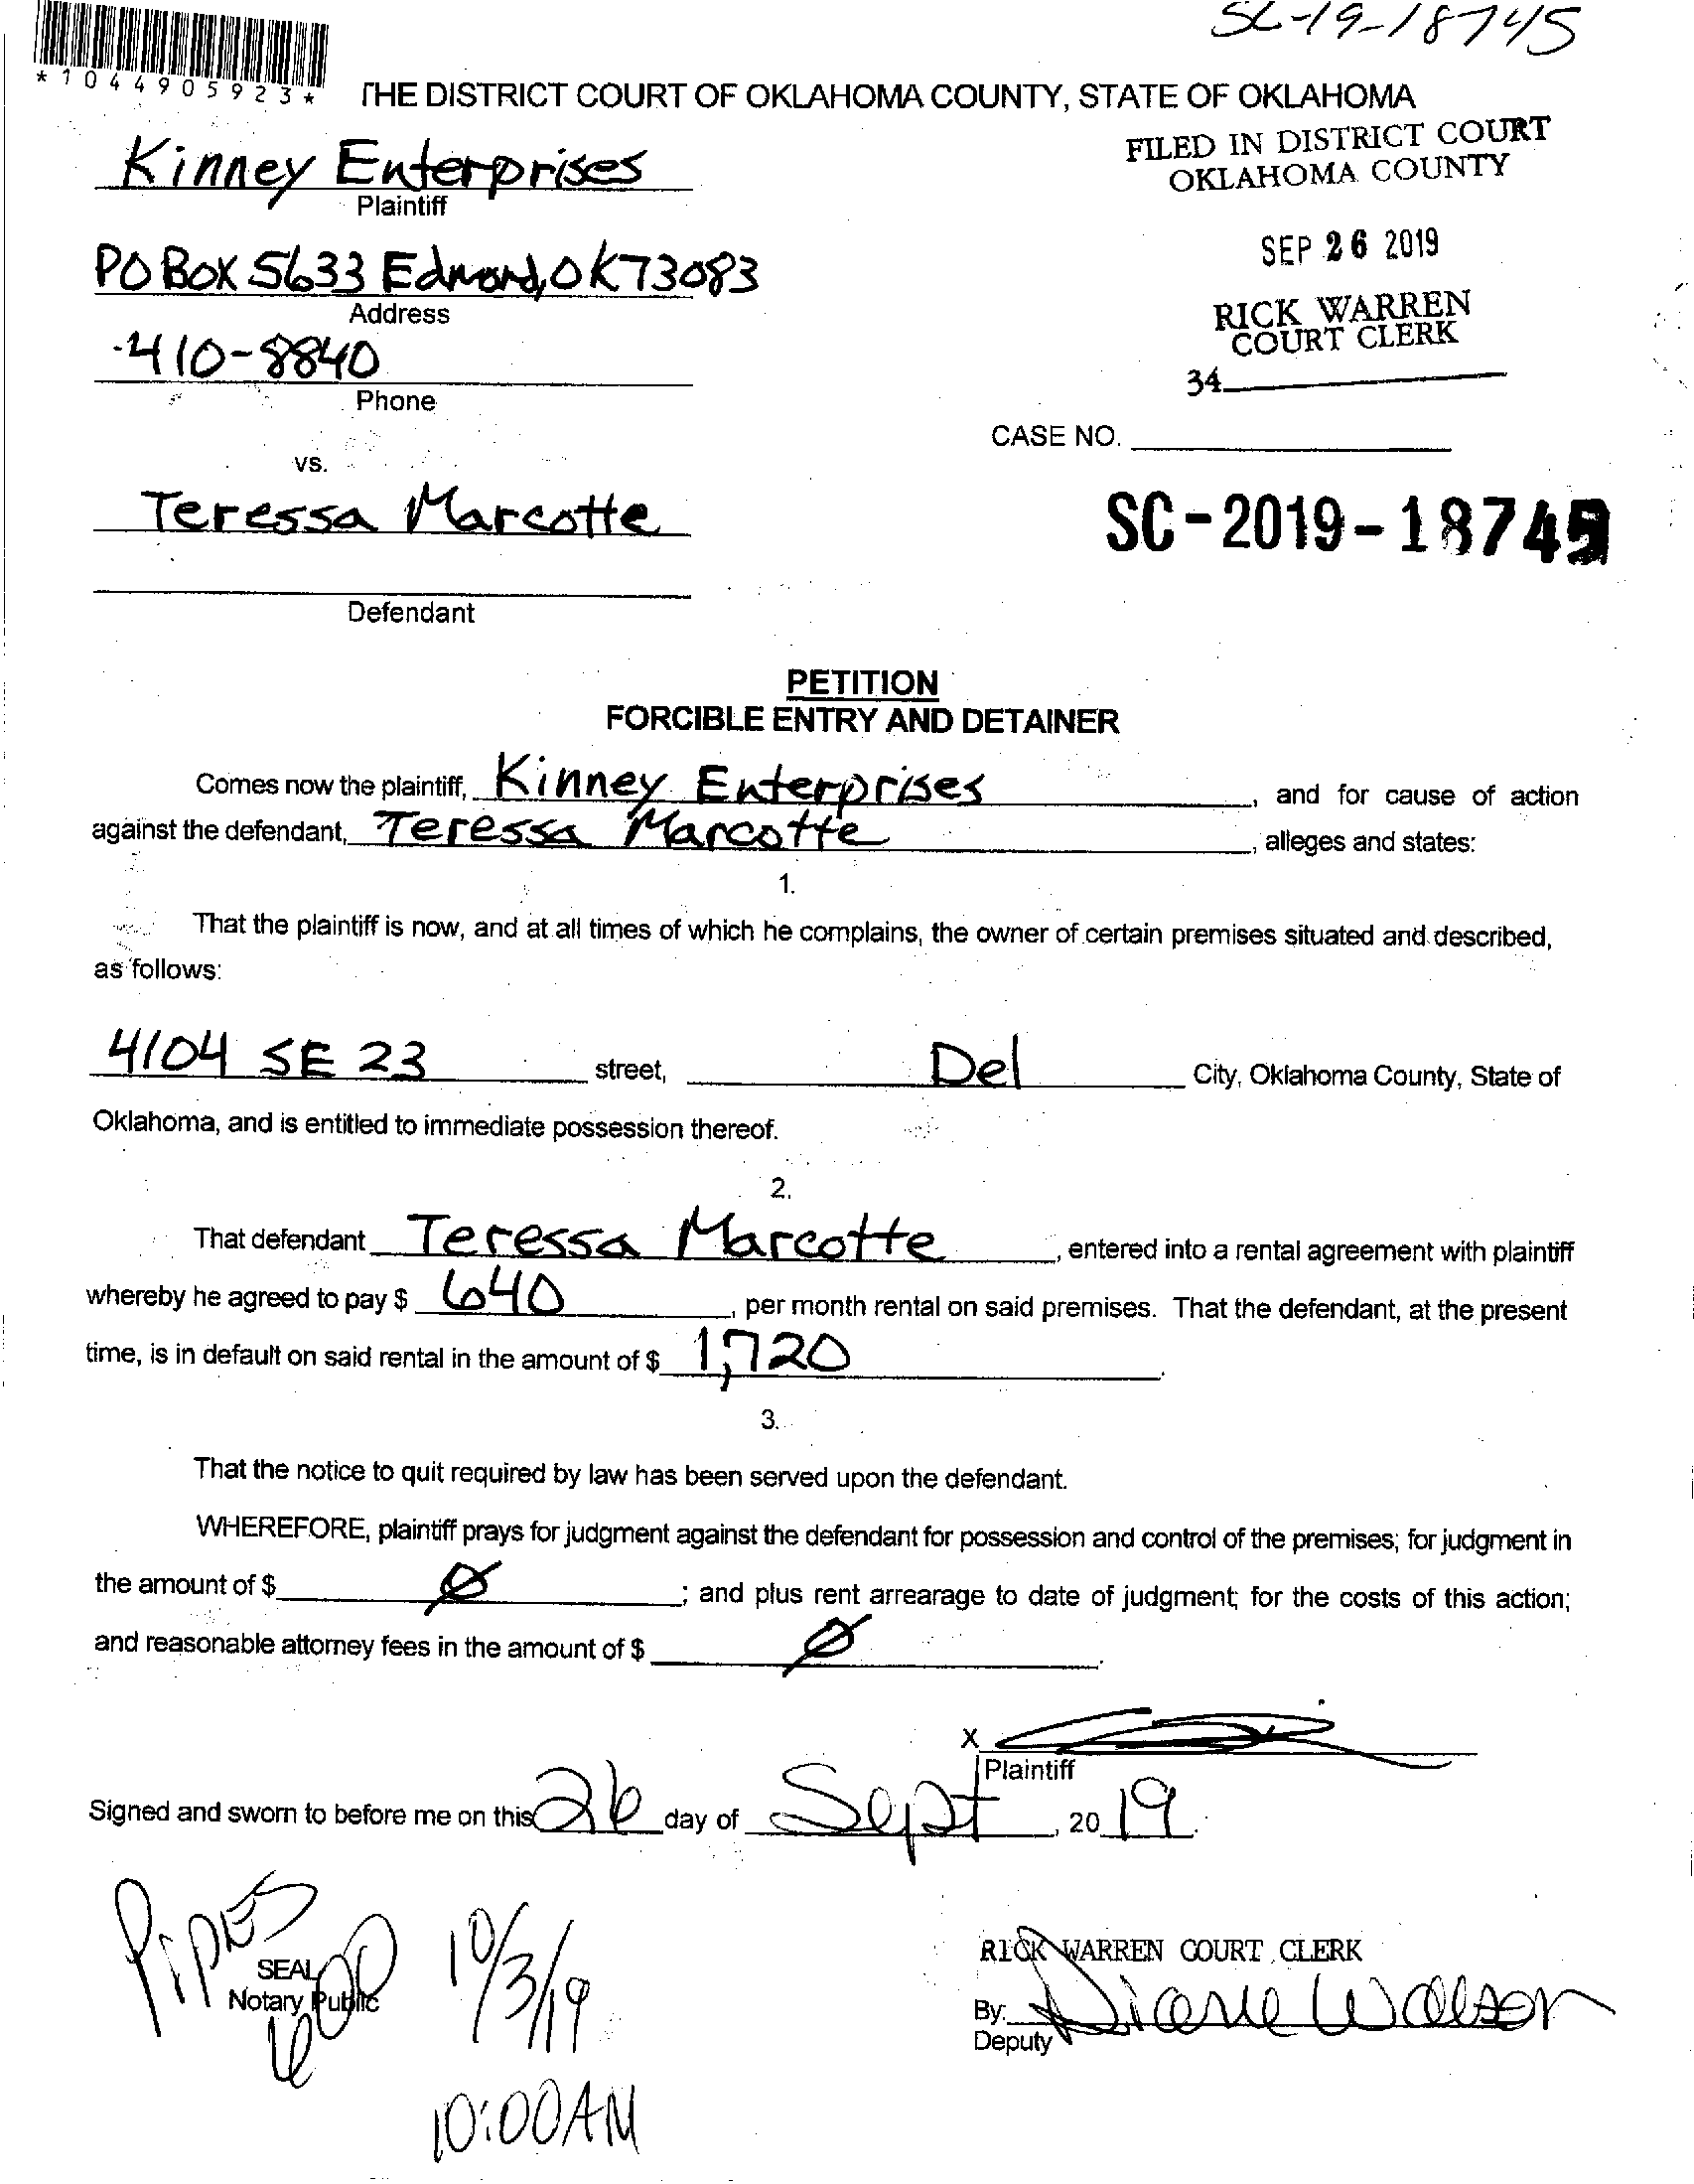 SC-19-18745
*1044905923*
THE DISTRICT COURT OF OKLAHOMA COUNTY, STATE OF OKLAHOMA
FILED IN DISTRICT COURT
OKLAHOMA COUNTY
Kinney Enterprises
Plaintiff
SEP 26 2019
PO Box 5633 Edmond, OK 73083
Address
RICK WARREN
COURT CLERK
410-8840
34
Phone
CASE NO.
vs.
Teressa Marcotte
SC-2019-18745
Defendant
PETITION
FORCIBLE ENTRY AND DETAINER
Comes now the plaintiff, Kinney Enterprises, and for cause of action
against the defendant, Teressa Marcotte, alleges and states:
1.
That the plaintiff is now, and at all times of which he complains, the owner of certain premises situated and described,
as follows:
4104 SE 23 street, Del City, Oklahoma County, State of
Oklahoma, and is entitled to immediate possession thereof.
2.
That defendant Teressa Marcotte, entered into a rental agreement with plaintiff
whereby he agreed to pay $ 640, per month rental on said premises. That the defendant, at the present
time, is in default on said rental in the amount of $ 1,720.
3.
That the notice to quit required by law has been served upon the defendant.
WHEREFORE, plaintiff prays for judgment against the defendant for possession and control of the premises; for judgment in
the amount of $ Ø; and plus rent arrearage to date of judgment; for the costs of this action;
and reasonable attorney fees in the amount of $ Ø.
X
Plaintiff
Signed and sworn to before me on this 26 day of Sept, 2019.
Pipes
10/3/19
RICK WARREN COURT CLERK
SEAL
Notary Public
600
By: Diane Watson
Deputy
10:00AM